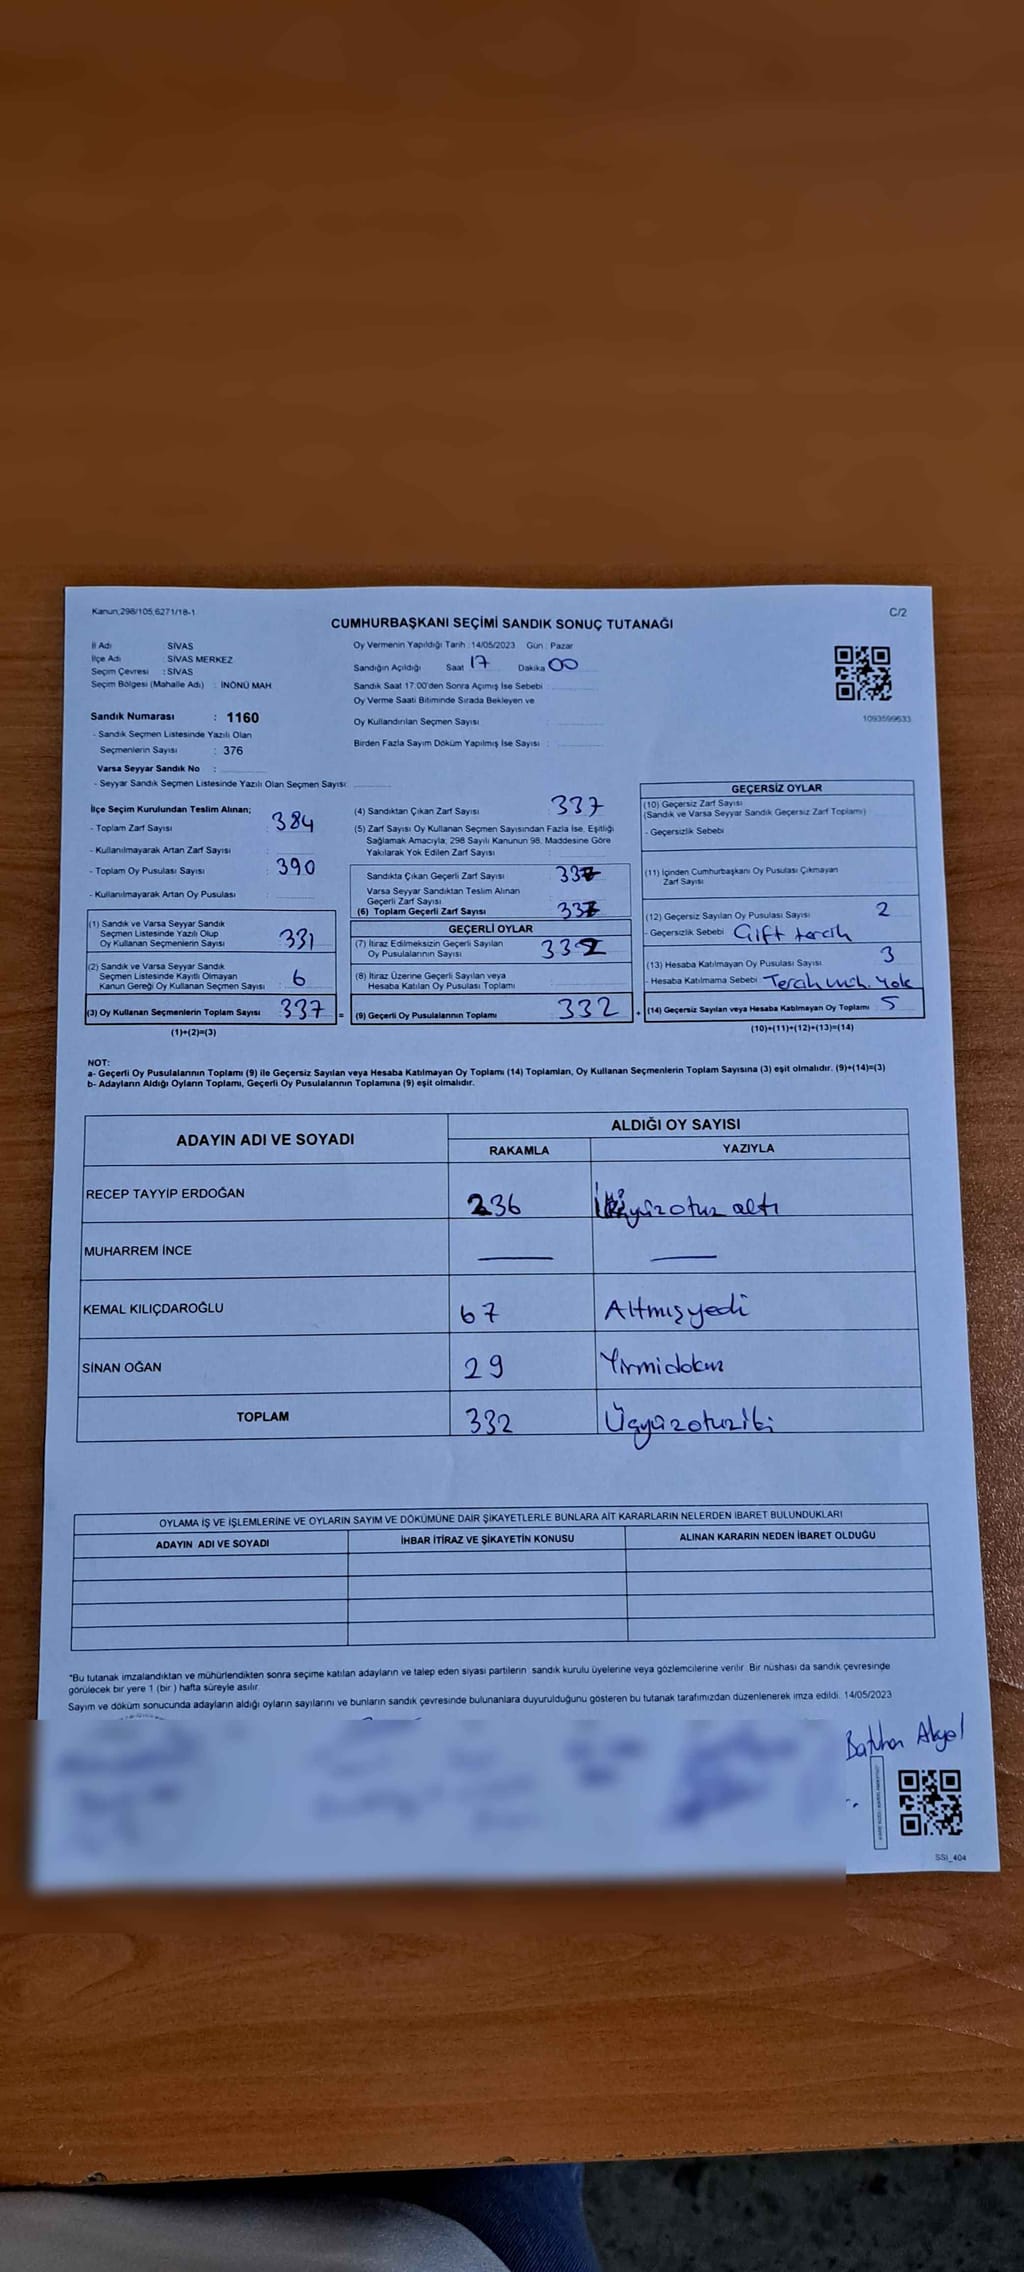 Kanun;298/105,6271/18-1
C/2
CUMHURBAŞKANI SEÇİMİ SANDIK SONUÇ TUTANAĞI
İl Adı SİVAS
İlçe Adı : SİVAS MERKEZ
Seçim Çevresi : SİVAS
Seçim Bölgesi (Mahalle Adı) : İNÖNÜ MAH
Oy Vermenin Yapıldığı Tarih :14/05/2023 Gün : Pazar
Sandığın Açıldığı Saat 17 Dakika 00
Sandık Saat 17:00'den Sonra Açımış İse Sebebi :
Oy Verme Saati Bitiminde Sırada Bekleyen ve
Oy Kullandırılan Seçmen Sayısı :
Birden Fazla Sayım Döküm Yapılmış İse Sayısı :
1093599633
Sandık Numarası : 1160
- Sandık Seçmen Listesinde Yazılı Olan
Seçmenlerin Sayısı : 376
Varsa Seyyar Sandık No :
- Seyyar Sandık Seçmen Listesinde Yazılı Olan Seçmen Sayısı:
İlçe Seçim Kurulundan Teslim Alınan;
- Toplam Zarf Sayısı : 384
- Kullanılmayarak Artan Zarf Sayısı :
- Toplam Oy Pusulası Sayısı : 390
- Kullanılmayarak Artan Oy Pusulası :
(1) Sandık ve Varsa Seyyar Sandık
Seçmen Listesinde Yazılı Olup
Oy Kullanan Seçmenlerin Sayısı : 331
(2) Sandık ve Varsa Seyyar Sandık
Seçmen Listesinde Kayıtlı Olmayan
Kanun Gereği Oy Kullanan Seçmen Sayısı : 6
(3) Oy Kullanan Seçmenlerin Toplam Sayısı : 337
(1)+(2)=(3)
(4) Sandıktan Çıkan Zarf Sayısı : 337
(5) Zarf Sayısı Oy Kullanan Seçmen Sayısından Fazla İse, Eşitliği
Sağlamak Amacıyla; 298 Sayılı Kanunun 98. Maddesine Göre
Yakılarak Yok Edilen Zarf Sayısı :
Sandıkta Çıkan Geçerli Zarf Sayısı : 337
Varsa Seyyar Sandıktan Teslim Alınan
Geçerli Zarf Sayısı :
(6) Toplam Geçerli Zarf Sayısı : 337
GEÇERLİ OYLAR
(7) İtiraz Edilmeksizin Geçerli Sayılan
Oy Pusulalarının Sayısı : 332
(8) İtiraz Üzerine Geçerli Sayılan veya
Hesaba Katılan Oy Pusulası Toplamı :
= (9) Geçerli Oy Pusulalarının Toplamı : 332 +
GEÇERSİZ OYLAR
(10) Geçersiz Zarf Sayısı
(Sandık ve Varsa Seyyar Sandık Geçersiz Zarf Toplamı)
- Geçersizlik Sebebi
(11) İçinden Cumhurbaşkanı Oy Pusulası Çıkmayan
Zarf Sayısı
(12) Geçersiz Sayılan Oy Pusulası Sayısı : 2
- Geçersizlik Sebebi Çift tercih
(13) Hesaba Katılmayan Oy Pusulası Sayısı. 3
- Hesaba Katılmama Sebebi yok
(14) Geçersiz Sayılan veya Hesaba Katılmayan Oy Toplamı : 5
(10)+(11)+(12)+(13)=(14)
NOT:
a- Geçerli Oy Pusulalarının Toplamı (9) ile Geçersiz Sayılan veya Hesaba Katılmayan Oy Toplamı (14) Toplamları, Oy Kullanan Seçmenlerin Toplam Sayısına (3) eşit olmalıdır. (9)+(14)=(3)
b- Adayların Aldığı Oyların Toplamı, Geçerli Oy Pusulalarının Toplamına (9) eşit olmalıdır.
ADAYIN ADI VE SOYADI
ALDIĞI OY SAYISI
RAKAMLA YAZIYLA
RECEP TAYYİP ERDOĞAN 236 İkiyüzotuz altı
MUHARREM İNCE
KEMAL KILIÇDAROĞLU 67 Altmışyedi
SİNAN OĞAN 29 Yirmidokuz
TOPLAM 332 Üçyüzotuziki
OYLAMA İŞ VE İŞLEMLERİNE VE OYLARIN SAYIM VE DÖKÜMÜNE DAİR ŞİKAYETLERLE BUNLARA AİT KARARLARIN NELERDEN İBARET BULUNDUKLARI
ADAYIN ADI VE SOYADI İHBAR İTİRAZ VE ŞİKAYETİN KONUSU ALINAN KARARIN NEDEN İBARET OLDUĞU
*Bu tutanak imzalandıktan ve mühürlendikten sonra seçime katılan adayların ve talep eden siyasi partilerin sandık kurulu üyelerine veya gözlemcilerine verilir. Bir nüshası da sandık çevresinde
görülecek bir yere 1 (bir ) hafta süreyle asılır.
Sayım ve döküm sonucunda adayların aldığı oyların sayılarını ve bunların sandık çevresinde bulunanlara duyurulduğunu gösteren bu tutanak tarafımızdan düzenlenerek imza edildi. 14/05/2023
Batuhan Akyol
SSI_404